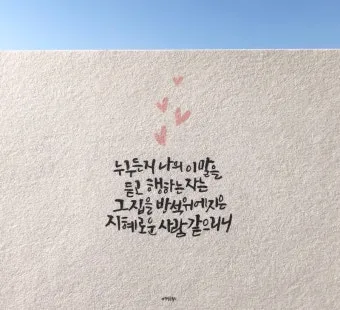 누구든지 나의 이 말을
듣고 행하는 자는
그 집을 반석 위에 지은
지혜로운 사람 같으리니